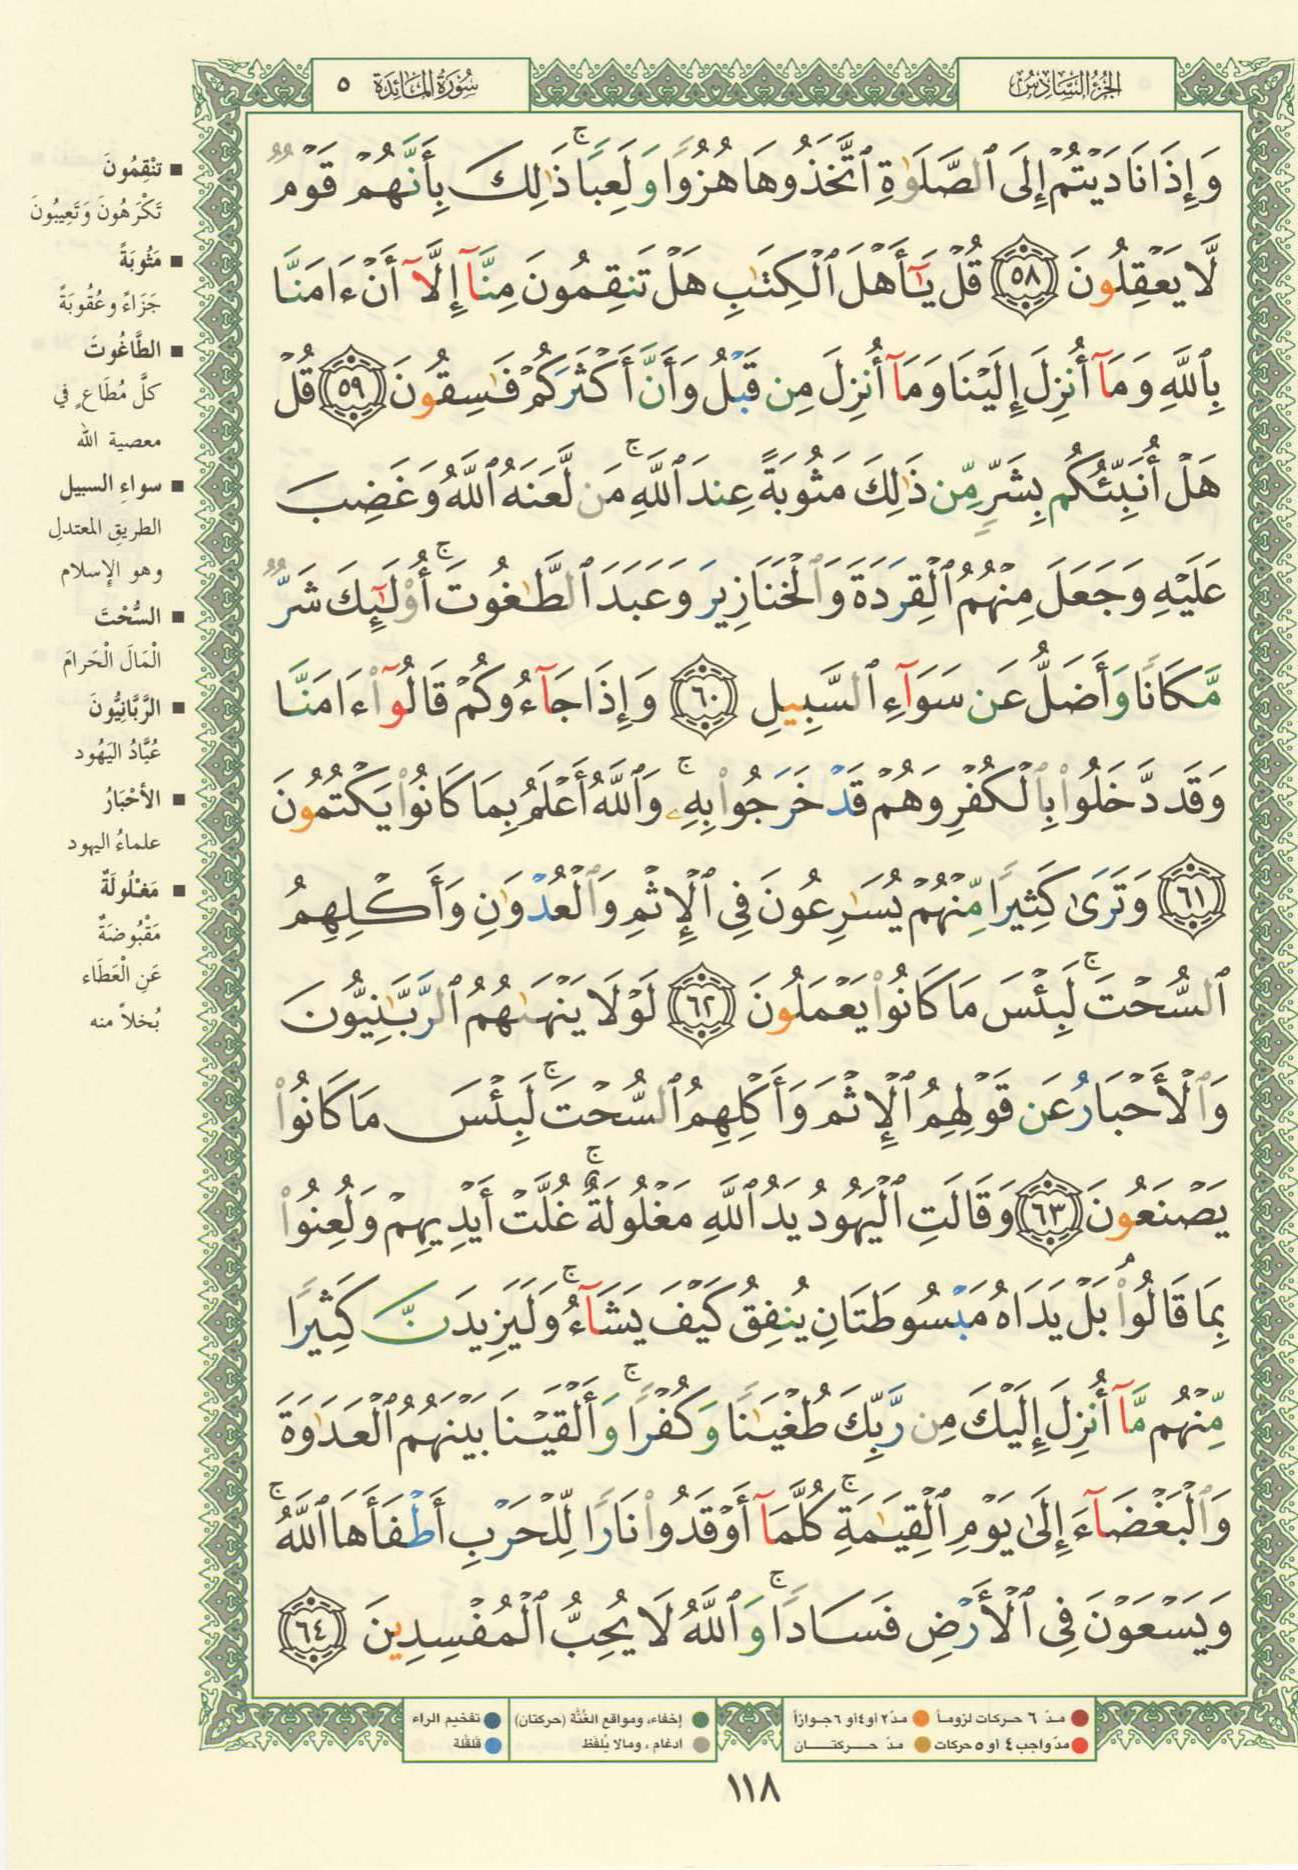 الجزء السادس
سورة المائدة ٥
وَإِذَا نَادَيْتُمْ إِلَى ٱلصَّلَوٰةِ ٱتَّخَذُوهَا هُزُوًا وَلَعِبًا ۚ ذَٰلِكَ بِأَنَّهُمْ قَوْمٌ
لَّا يَعْقِلُونَ ٥٨ قُلْ يَـٰٓأَهْلَ ٱلْكِتَـٰبِ هَلْ تَنقِمُونَ مِنَّآ إِلَّآ أَنْ ءَامَنَّا
بِٱللَّهِ وَمَآ أُنزِلَ إِلَيْنَا وَمَآ أُنزِلَ مِن قَبْلُ وَأَنَّ أَكْثَرَكُمْ فَـٰسِقُونَ ٥٩ قُلْ
هَلْ أُنَبِّئُكُم بِشَرٍّ مِّن ذَٰلِكَ مَثُوبَةً عِندَ ٱللَّهِ ۚ مَن لَّعَنَهُ ٱللَّهُ وَغَضِبَ
عَلَيْهِ وَجَعَلَ مِنْهُمُ ٱلْقِرَدَةَ وَٱلْخَنَازِيرَ وَعَبَدَ ٱلطَّـٰغُوتَ ۚ أُو۟لَـٰٓئِكَ شَرٌّ
مَّكَانًا وَأَضَلُّ عَن سَوَآءِ ٱلسَّبِيلِ ٦٠ وَإِذَا جَآءُوكُمْ قَالُوٓا۟ ءَامَنَّا
وَقَد دَّخَلُوا۟ بِٱلْكُفْرِ وَهُمْ قَدْ خَرَجُوا۟ بِهِۦ ۚ وَٱللَّهُ أَعْلَمُ بِمَا كَانُوا۟ يَكْتُمُونَ
٦١ وَتَرَىٰ كَثِيرًا مِّنْهُمْ يُسَـٰرِعُونَ فِى ٱلْإِثْمِ وَٱلْعُدْوَٰنِ وَأَكْلِهِمُ
ٱلسُّحْتَ ۚ لَبِئْسَ مَا كَانُوا۟ يَعْمَلُونَ ٦٢ لَوْلَا يَنْهَىٰهُمُ ٱلرَّبَّـٰنِيُّونَ
وَٱلْأَحْبَارُ عَن قَوْلِهِمُ ٱلْإِثْمَ وَأَكْلِهِمُ ٱلسُّحْتَ ۚ لَبِئْسَ مَا كَانُوا۟
يَصْنَعُونَ ٦٣ وَقَالَتِ ٱلْيَهُودُ يَدُ ٱللَّهِ مَغْلُولَةٌ ۚ غُلَّتْ أَيْدِيهِمْ وَلُعِنُوا۟
بِمَا قَالُوا۟ ۘ بَلْ يَدَاهُ مَبْسُوطَتَانِ يُنفِقُ كَيْفَ يَشَآءُ ۚ وَلَيَزِيدَنَّ كَثِيرًا
مِّنْهُم مَّآ أُنزِلَ إِلَيْكَ مِن رَّبِّكَ طُغْيَـٰنًا وَكُفْرًا ۚ وَأَلْقَيْنَا بَيْنَهُمُ ٱلْعَدَٰوَةَ
وَٱلْبَغْضَآءَ إِلَىٰ يَوْمِ ٱلْقِيَـٰمَةِ ۚ كُلَّمَآ أَوْقَدُوا۟ نَارًا لِّلْحَرْبِ أَطْفَأَهَا ٱللَّهُ ۚ
وَيَسْعَوْنَ فِى ٱلْأَرْضِ فَسَادًا ۚ وَٱللَّهُ لَا يُحِبُّ ٱلْمُفْسِدِينَ ٦٤
■ تَنْقِمُونَ
تَكْرَهُونَ وَتَعِيبُونَ
■ مَثُوبَةً
جَزَاءً وعُقُوبَةً
■ الطَّاغُوتَ
كلَّ مُطَاعٍ في
معصية الله
■ سواءِ السبيل
الطريقِ المعتدلِ
وهو الإسلام
■ السُّحْتَ
الْمَالَ الْحَرامَ
■ الرَّبَّانِيُّونَ
عُبَّادُ اليَهُود
■ الأحْبَارُ
علماءُ اليهود
■ مَغْلُولَةٌ
مَقْبُوضَةٌ
عَنِ الْعَطَاء
بُخلاً منه
مدّ ٦ حركات لزوماً مدّ ٢ او ٤ او ٦ جوازاً
مدّ واجب ٤ او ٥ حركات مدّ حركتان
إخفاء، ومواقع الغُنَّة (حركتان)
ادغام، ومالا يُلفَظ
تفخيم الراء
قلقلة
١١٨